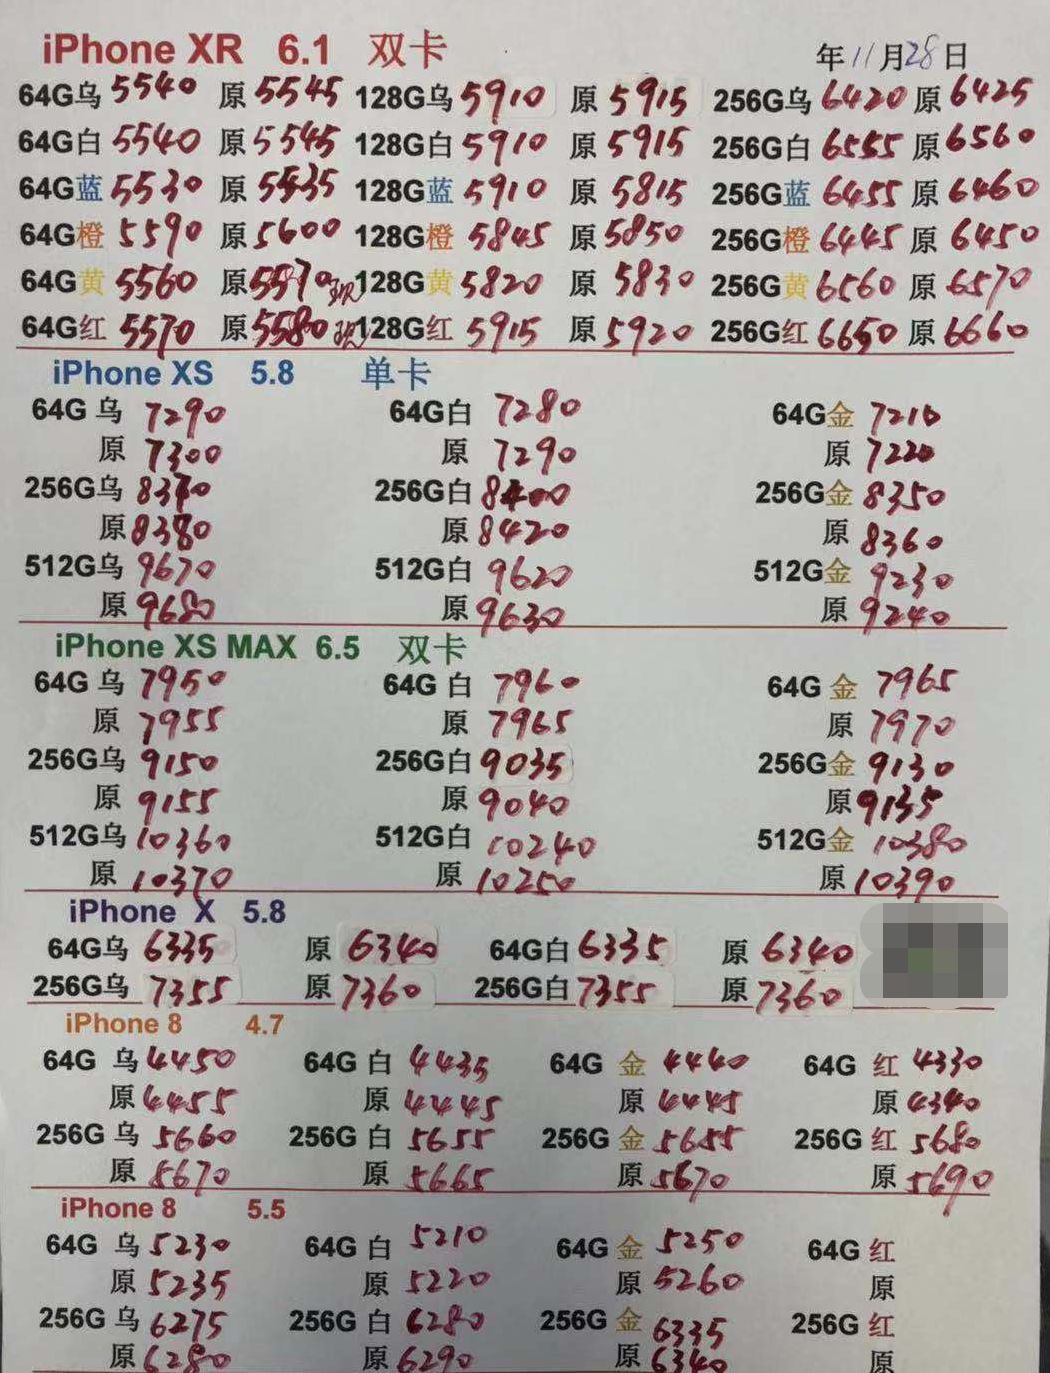 iPhone XR 6.1 双卡 年11月28日
64G乌 5540 原 5545 128G乌 5910 原 5915 256G乌 6420 原 6425
64G白 5540 原 5545 128G白 5910 原 5915 256G白 6555 原 6560
64G蓝 5530 原 5535 128G蓝 5910 原 5815 256G蓝 6455 原 6460
64G橙 5590 原 5600 128G橙 5845 原 5850 256G橙 6445 原 6450
64G黄 5560 原 5570 现 128G黄 5820 原 5830 256G黄 6560 原 6570
64G红 5570 原 5580 现 128G红 5915 原 5920 256G红 6650 原 6660
iPhone XS 5.8 单卡
64G 乌 7290 64G白 7280 64G金 7210
原 7300 原 7290 原 7220
256G乌 8370 256G白 8400 256G金 8350
原 8380 原 8420 原 8360
512G乌 9670 512G白 9620 512G金 9230
原 9680 原 9630 原 9240
iPhone XS MAX 6.5 双卡
64G 乌 7950 64G 白 7960 64G 金 7965
原 7955 原 7965 原 7970
256G乌 9150 256G白 9035 256G金 9130
原 9155 原 9040 原 9135
512G乌 10360 512G白 10240 512G金 10380
原 10370 原 10250 原 10390
iPhone X 5.8
64G乌 6335 原 6340 64G白 6335 原 6340
256G乌 7355 原 7360 256G白 7355 原 7360
iPhone 8 4.7
64G 乌 4450 64G 白 4435 64G 金 4440 64G 红 4330
原 4455 原 4445 原 4445 原 4340
256G 乌 5660 256G 白 5655 256G 金 5655 256G 红 5680
原 5670 原 5665 原 5670 原 5690
iPhone 8 5.5
64G 乌 5230 64G 白 5210 64G 金 5250 64G 红
原 5235 原 5220 原 5260 原
256G 乌 6275 256G 白 6280 256G 金 6335 256G 红
原 6280 原 6290 原 6340 原